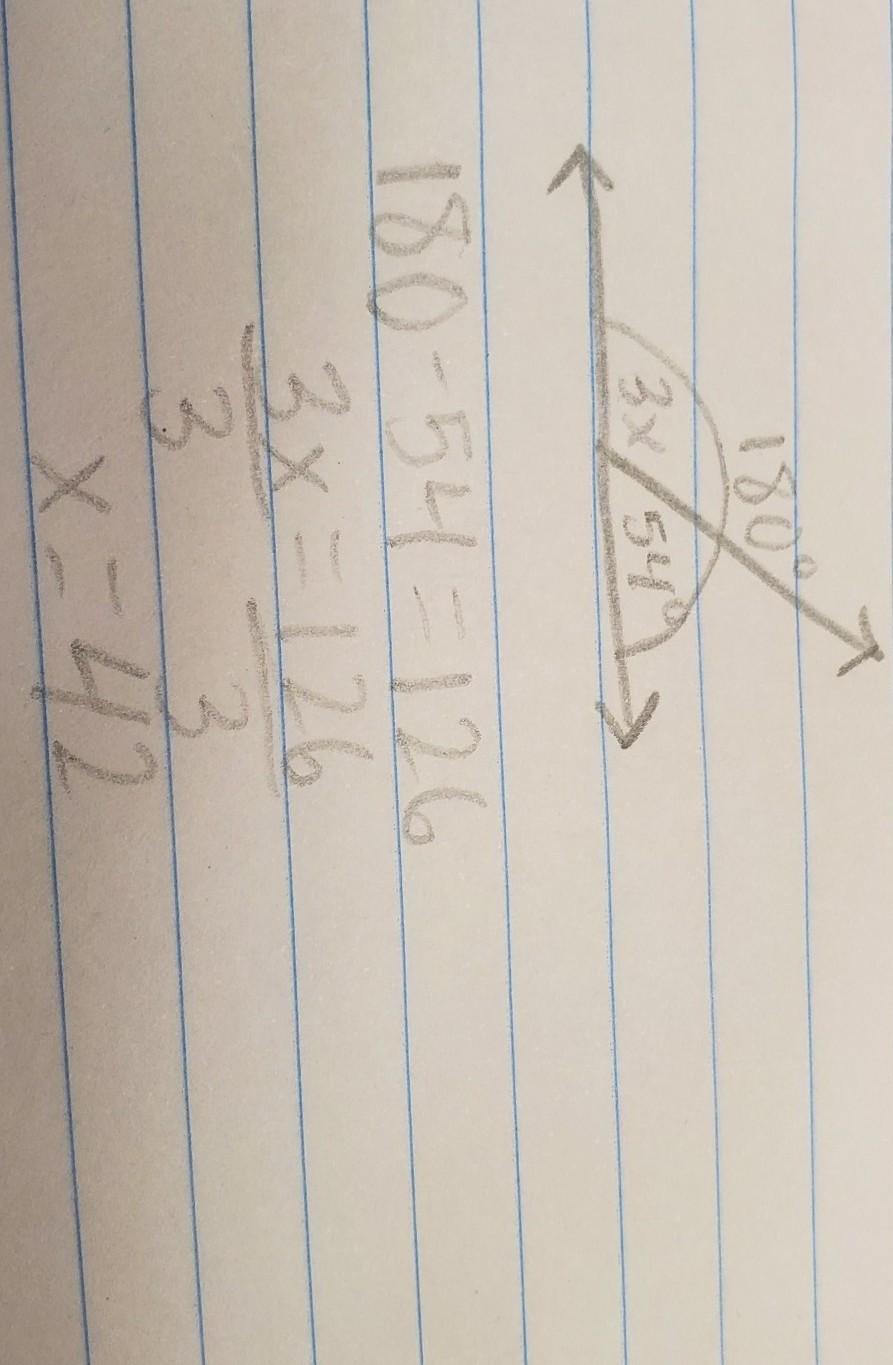 180°
3x 54°
180-54=126
3x = 126
3 3
x = 42